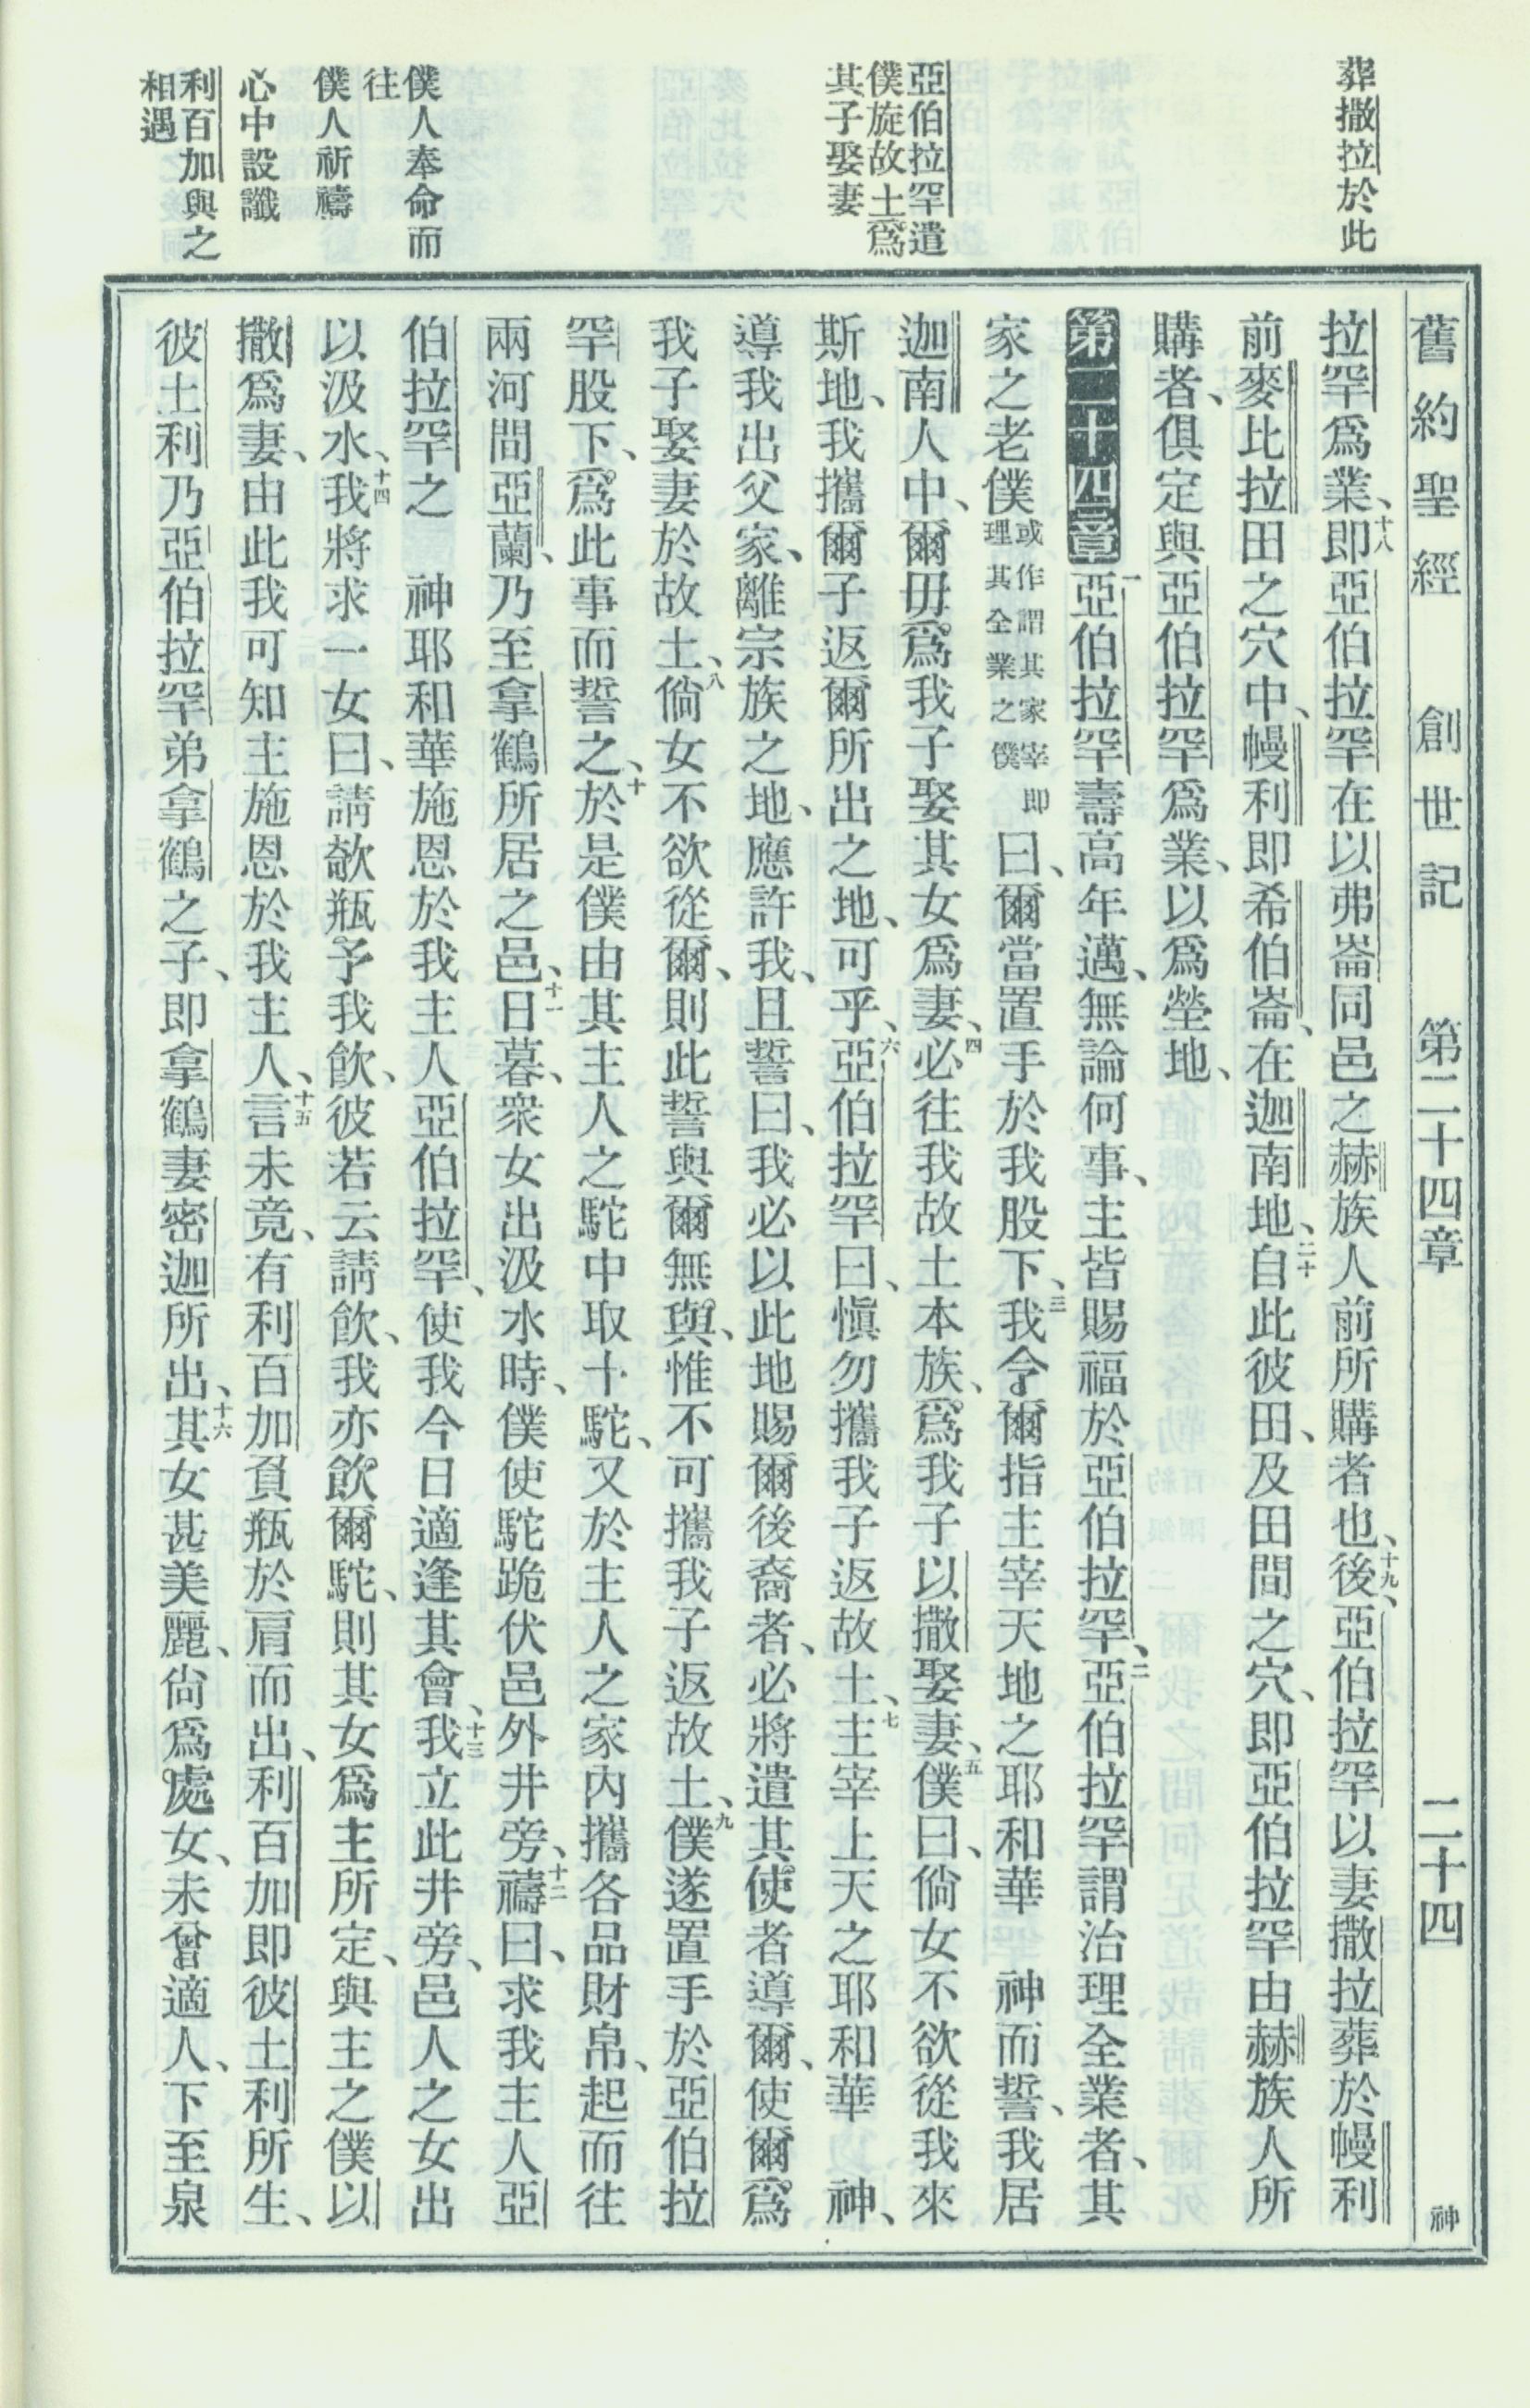 舊約聖經 創世記 第二十四章 二十四 神
葬撒拉於此
拉罕爲業、十八即亞伯拉罕在以弗崙同邑之赫族人前所購者也、十九後、亞伯拉罕以妻撒拉葬於幔利
前麥比拉田之穴中、幔利即希伯崙、在迦南地、二十自此彼田、及田間之穴、即亞伯拉罕由赫族人所
購者、俱定與亞伯拉罕爲業、以爲塋地、
第二十四章 一亞伯拉罕壽高年邁、無論何事、主皆賜福於亞伯拉罕、二亞伯拉罕謂治理全業者、其
家之老僕或作謂其家宰即理其全業之僕曰、爾當置手於我股下、三我令爾指主宰天地之耶和華 神而誓、我居
亞伯拉罕遣
僕旋故土爲
其子娶妻
迦南人中、爾毋爲我子娶其女爲妻、四必往我故土本族、爲我子以撒娶妻、五僕曰、倘女不欲從我來
斯地、我攜爾子返爾所出之地、可乎、六亞伯拉罕曰、愼勿攜我子返故土、七主宰上天之耶和華 神、
導我出父家、離宗族之地、應許我、且誓曰、我必以此地賜爾後裔者、必將遣其使者導爾、使爾爲
我子娶妻於故土、八倘女不欲從爾、則此誓與爾無與、惟不可攜我子返故土、九僕遂置手於亞伯拉
罕股下、爲此事而誓之、十於是僕由其主人之駝中取十駝、又於主人之家內攜各品財帛、起而往
兩河間亞蘭、乃至拿鶴所居之邑、十一日暮、衆女出汲水時、僕使駝跪伏邑外井旁、十二禱曰、求我主人亞
僕人奉命而
往
伯拉罕之 神耶和華施恩於我主人亞伯拉罕、使我今日適逢其會、十三我立此井旁、邑人之女出
僕人祈禱
以汲水、十四我將求一女曰、請欹瓶予我飲、彼若云請飲、我亦飲爾駝、則其女爲主所定、與主之僕以
心中設讖
撒爲妻、由此我可知主施恩於我主人、十五言未竟、有利百加負瓶於肩而出、利百加即彼土利所生、
利百加與之
相遇
彼土利乃亞伯拉罕弟拿鶴之子、即拿鶴妻密迦所出、十六其女甚美麗、尙爲處女、未曾適人、下至泉